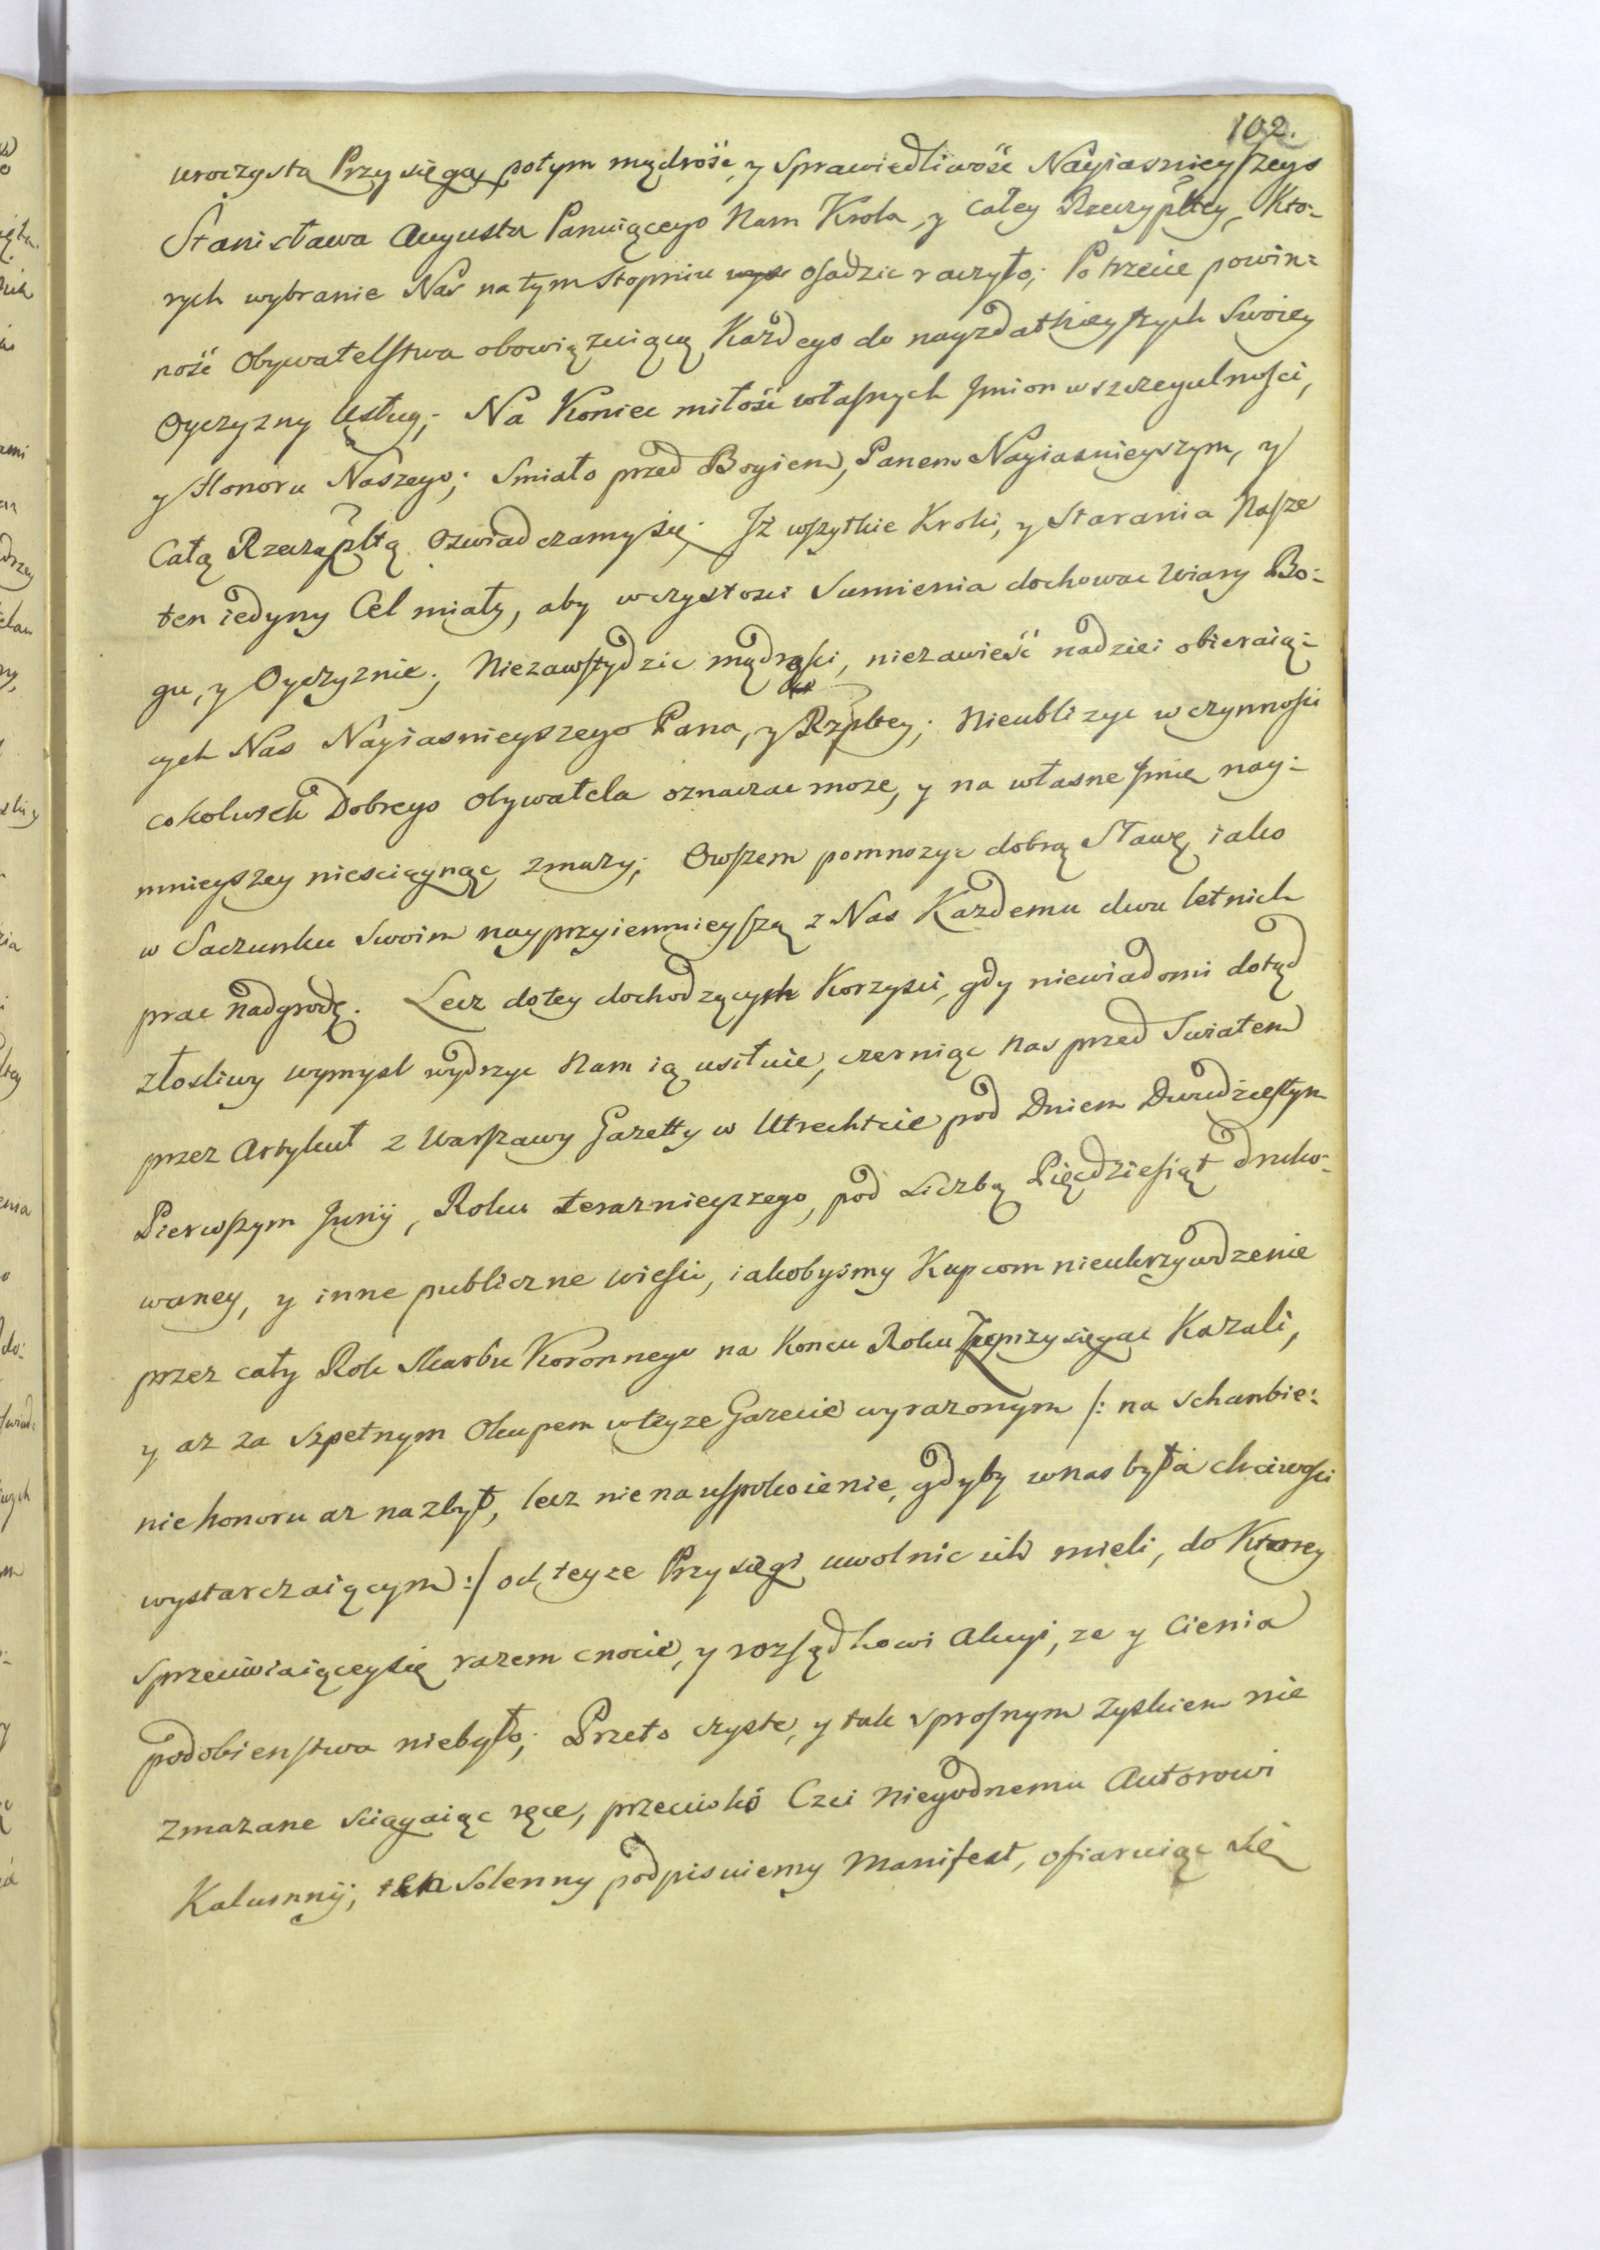 102.
uroczystą Przysięgą, potym mądrość, y Sprawiedliwość Nayiasnieyszego
Stanisława Augusta Panuiącego Nam Krola, y całey Rzeczypltey, Kto-
rych wybranie Nas na tym Stopniu osadzic raczyło; Po trzecie powin-
ność Obywatelstwa obowiązuiącą Każdego do nayzdatnieyszych Swoiey
Oyczyzny Usług; Na Koniec miłość własnych Jmion w szczegulności,
y Honoru Naszego; Smiało przed Bogiem, Panem Nayiasnieyszym, y
Całą Rzecząpltą Oswiadczamy się; Jż wszytkie Kroki, y Starania Nasze
ten iedyny Cel miały, aby w czystosci Sumienia dochowac Wiary Bo-
gu, y Oyczyznie; Niezawstydzic mądrosci, niezawieść nadziei obieraią-
cych Nas Nayiasnieyszego Pana, y Rzpltey; Nieublizyc w czynnosci
cokolwiek Dobrego Obywatela oznaczac moze, y na własne Jmie nay-
mnieyszey niesciągnąc zmazy; Owszem pomnozyc dobrą Sławę iako
w Szacunku Swoim nayprzyiemnieyszą z Nas Każdemu dwu letnich
prac nadgrodę. Lecz do tey dochodzących Korzysci, gdy niewiadomi dotąd
złosliwy wymysl wydrzyc Nam ią usiłuie, czerniąc Nas przed Swiatem
przez Artykuł z Warszawy Gazetty w Utrechtcie pod Dniem Dwudziestym
Pierwszym Junij, Roku terazniejszego, pod Liczbą Pięcdziesiąt druko-
waney, y inne publiczne wiesci, iakobyśmy Kupcom nieukrzywdzenie
przez cały Rok Skarbu Koronnego na Koncu Roku poprzysięgac Kazali,
y az za szpetnym Okupem w teyze Gazecie wyrazonym /: na schanbie-
nie honoru az nazbyt, lecz nie na uspokoienie, gdyby w nas była chciwosci
wystarczaiącym :/ od teyze Przysięgi uwolnic ich mieli, do Ktorey
sprzeciwiaiącey się razem cnocie, y rozsądkowi Akcyi, ze y Cienia
podobienstwa niebyło; Przeto czyste, y tak sprosnym Zyskiem nie
zmazane sciągaiąc ręce, przeciwko Czci niegodnemu Autorowi
Kalumnij, ten Solenny podpisuiemy Manifest, ofiaruiąc się